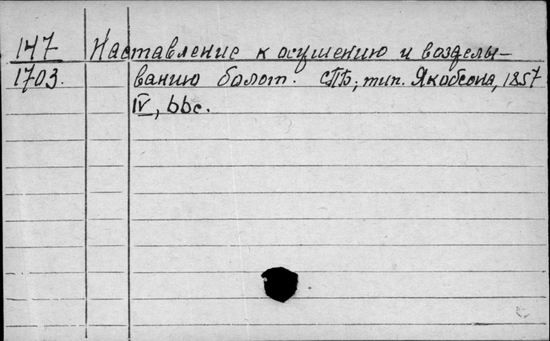 147 Наставление к осушению и возделы-
1703. ванию болот. СПБ, тип. Якобсона, 1857
IV, 66с.